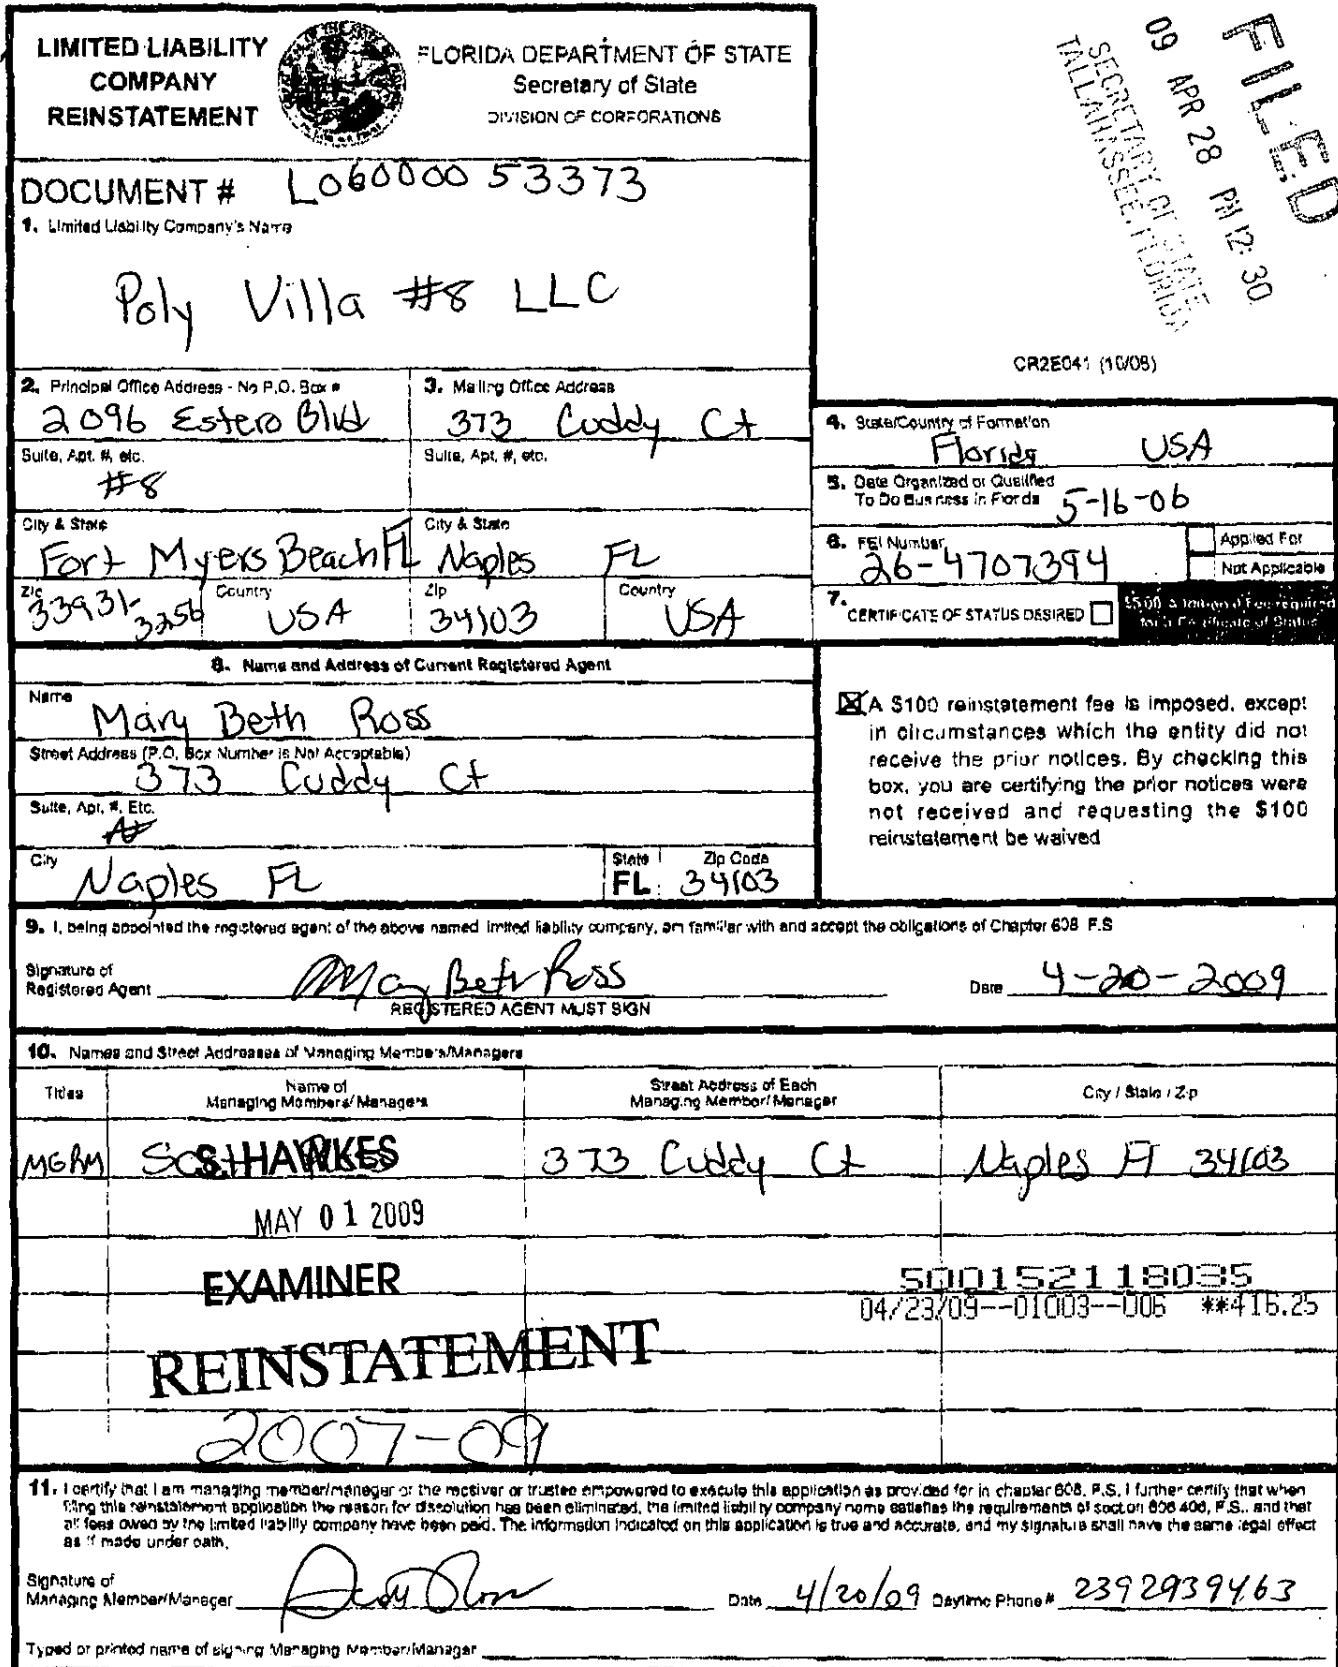 LIMITED LIABILITY
COMPANY
REINSTATEMENT
FLORIDA DEPARTMENT OF STATE
Secretary of State
DIVISION OF CORPORATIONS
FILED
09 APR 28 PM 12:30
SECRETARY OF STATE
TALLAHASSEE, FLORIDA
DOCUMENT # L06000053373
1. Limited Liability Company's Name
Poly Villa #8 LLC
CR2E041 (10/08)
2. Principal Office Address - No P.O. Box #
2096 Estero Blvd
3. Mailing Office Address
373 Cuddy Ct
Suite, Apt. #, etc.
#8
Suite, Apt. #, etc.
City & State
Fort Myers Beach FL
City & State
Naples FL
Zip
33931-3256
Country
USA
Zip
34103
Country
USA
4. State/Country of Formation
Florida USA
5. Date Organized or Qualified
To Do Business in Florida 5-16-06
6. FEI Number
26-4707394
Applied For
Not Applicable
7. CERTIFICATE OF STATUS DESIRED
$5.00 Additional Fee required
for a Certificate of Status
8. Name and Address of Current Registered Agent
Name
Mary Beth Ross
Street Address (P.O. Box Number is Not Acceptable)
373 Cuddy Ct
Suite, Apt. #, Etc.
City
Naples FL
State
FL
Zip Code
34103
A $100 reinstatement fee is imposed, except
in circumstances which the entity did not
receive the prior notices. By checking this
box, you are certifying the prior notices were
not received and requesting the $100
reinstatement be waived
9. I, being appointed the registered agent of the above named limited liability company, am familiar with and accept the obligations of Chapter 608 F.S
Signature of
Registered Agent Mary Beth Ross
REGISTERED AGENT MUST SIGN
Date 4-20-2009
10. Names and Street Addresses of Managing Members/Managers
Titles
Name of
Managing Members/Managers
Street Address of Each
Managing Member/Manager
City / State / Zip
MGRM
S. HAWKES
373 Cuddy Ct
Naples Fl 34103
MAY 01 2009
EXAMINER
500152118035
04/23/09--01003--006 **416.25
REINSTATEMENT
2007-09
11. I certify that I am managing member/manager or the receiver or trustee empowered to execute this application as provided for in chapter 608, F.S. I further certify that when
filing this reinstatement application the reason for dissolution has been eliminated, the limited liability company name satisfies the requirements of section 608.406, F.S., and that
all fees owed by the limited liability company have been paid. The information indicated on this application is true and accurate, and my signature shall have the same legal effect
as if made under oath.
Signature of
Managing Member/Manager
Date 4/20/09 Daytime Phone # 2392939463
Typed or printed name of signing Managing Member/Manager